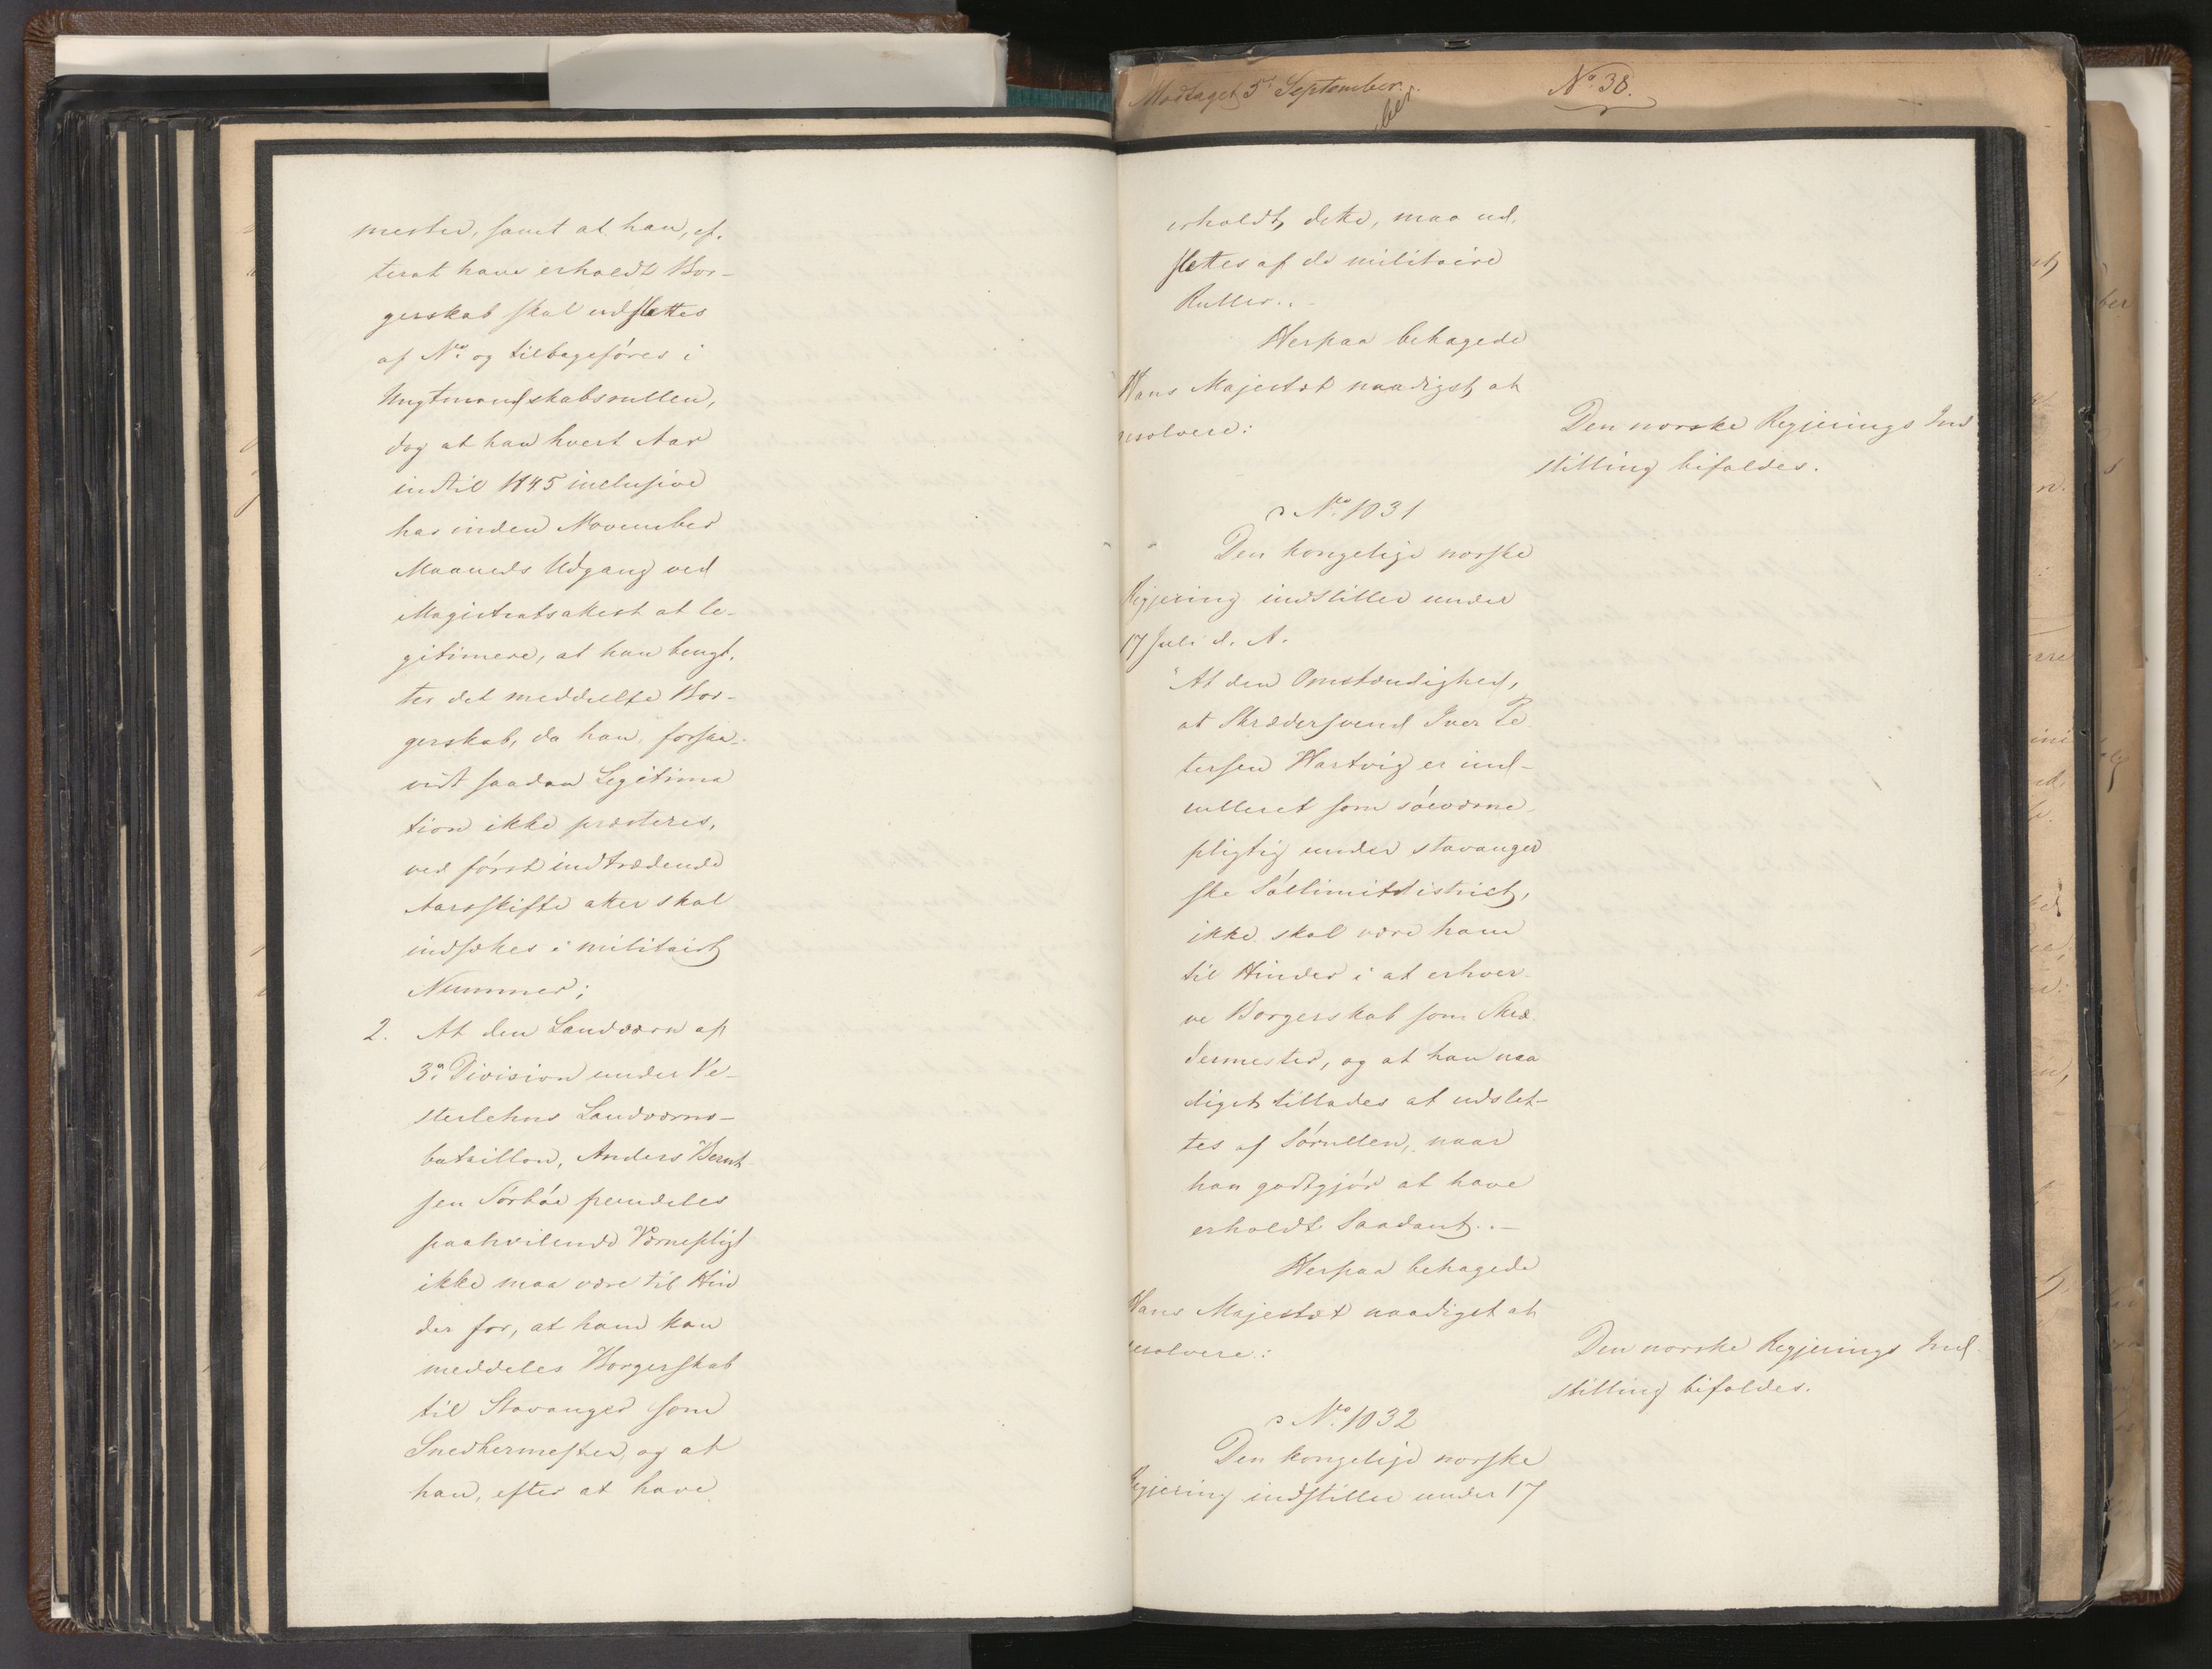 mester, samt at han, ef-
terat have erholdt Bor-
gerskab skal udslettes
af No. og tilbageføres i
Ungtmandskabsrullen,
dog at han hvert Aar
indtil 1845 inclusive
har inden November
Maaneds Udgang ved
Magistratsattest at le-
gitimere, at han benyt-
ter det meddeelte Bor-
gerskab, da han, forsaa-
vidt saadan Legitima
tion ikke præsteres,
ved først indtrædende
Aarsskifte atter skal
indsættes i militairt
Nummer;
2. At den Landværn af
3die Division under Ve-
sterlehns Landværns-
bataillon, Anders Bernt
sen Sørbøe
paahvilende Værnepligt
ikke maa være til Hin
der for, at ham kan
meddeles Borgerskab
til Stavanger som
Snedkermester, og at
han, efter at have
Modtaget 5te September.
No. 38.
ber
erholdt dette, maa ud-
slettes af de militaire
Ruller..
Herpaa behagede
Hans Majestæt naadigst at
resolvere:
Den norske Regjerings Ind
stilling bifaldes.
No. 1031
Den kongelige norske
Regjering indstiller under
17 Juli d. A.
"At den Omstændighed,
at Skrædersvend Iver Pe
tersen Hartvig er ind-
rulleret som søeværne-
pligtig under stavanger
ske Sølimitdistrict,
ikke skal være ham
til Hinder i at erhver-
ve Borgerskab som Skræ-
dermester, og at han naa
digst tillades at udslet-
tes af Sørullen, naar
han godtgjør at have
erholdt Saadant..—
Herpaa behagede
Hans Majestæt naadigst at
resolvere:
Den norske Regjerings Ind-
stilling bifaldes.
No. 1032
Den kongelige norske
Regjering indstiller under 17